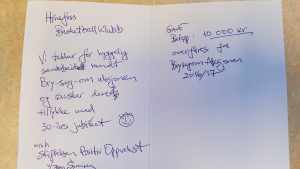 Hønefoss
Basketballklubb
Vi takker for hyggelig
samarbeidet rundt
Bry-seg-om aksjonen
og ønsker dere
tillykke med
30-års jubileet
mvh
Stiftelsen Positiv Oppvekst
Gave
Beløp: 10.000 kr
overføres fra
Bryseg om-Aksjonen
2016/17